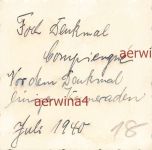 Foch Denkmal
Compiengne
aerwin
Vor dem Denkmal
einige Kameraden
aerwina4
Juli 1940
18